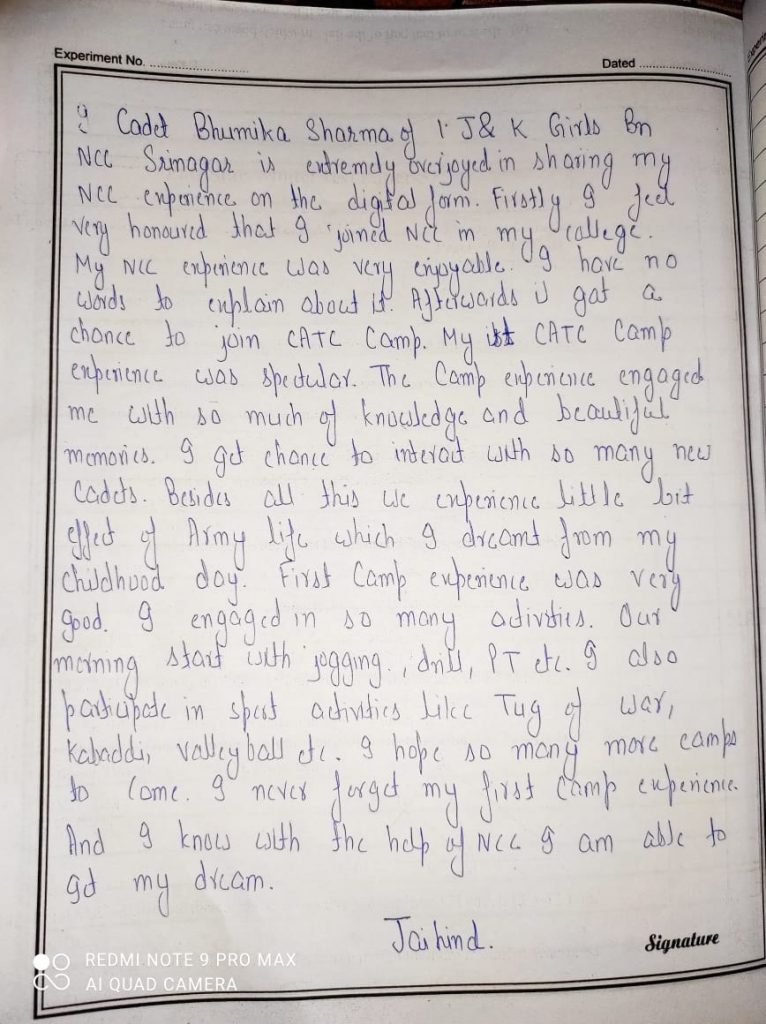 Experiment No. ........................
Dated ........................
I Cadet Bhumika Sharma of 1 J&K Girls Bn
NCC Srinagar is extremely overjoyed in sharing my
NCC experience on the digital form. Firstly I feel
very honoured that I joined NCC in my college.
My NCC experience was very enjoyable. I have no
words to explain about it. Afterwards I got a
chance to join CATC Camp. My 1st CATC Camp
experience was spectular. The Camp experience engaged
me with so much of knowledge and beautiful
memories. I get chance to interact with so many new
Cadets. Besides all this we experience little bit
effect of Army life which I dreamt from my
childhood day. First Camp experience was very
good. I engaged in so many activities. Our
morning start with jogging, drill, PT etc. I also
participate in sport activities like Tug of war,
Kabaddi, valleyball etc. I hope so many more camps
to come. I never forget my first Camp experience.
And I know with the help of NCC I am able to
get my dream.
Jaihind.
Signature
REDMI NOTE 9 PRO MAX
AI QUAD CAMERA